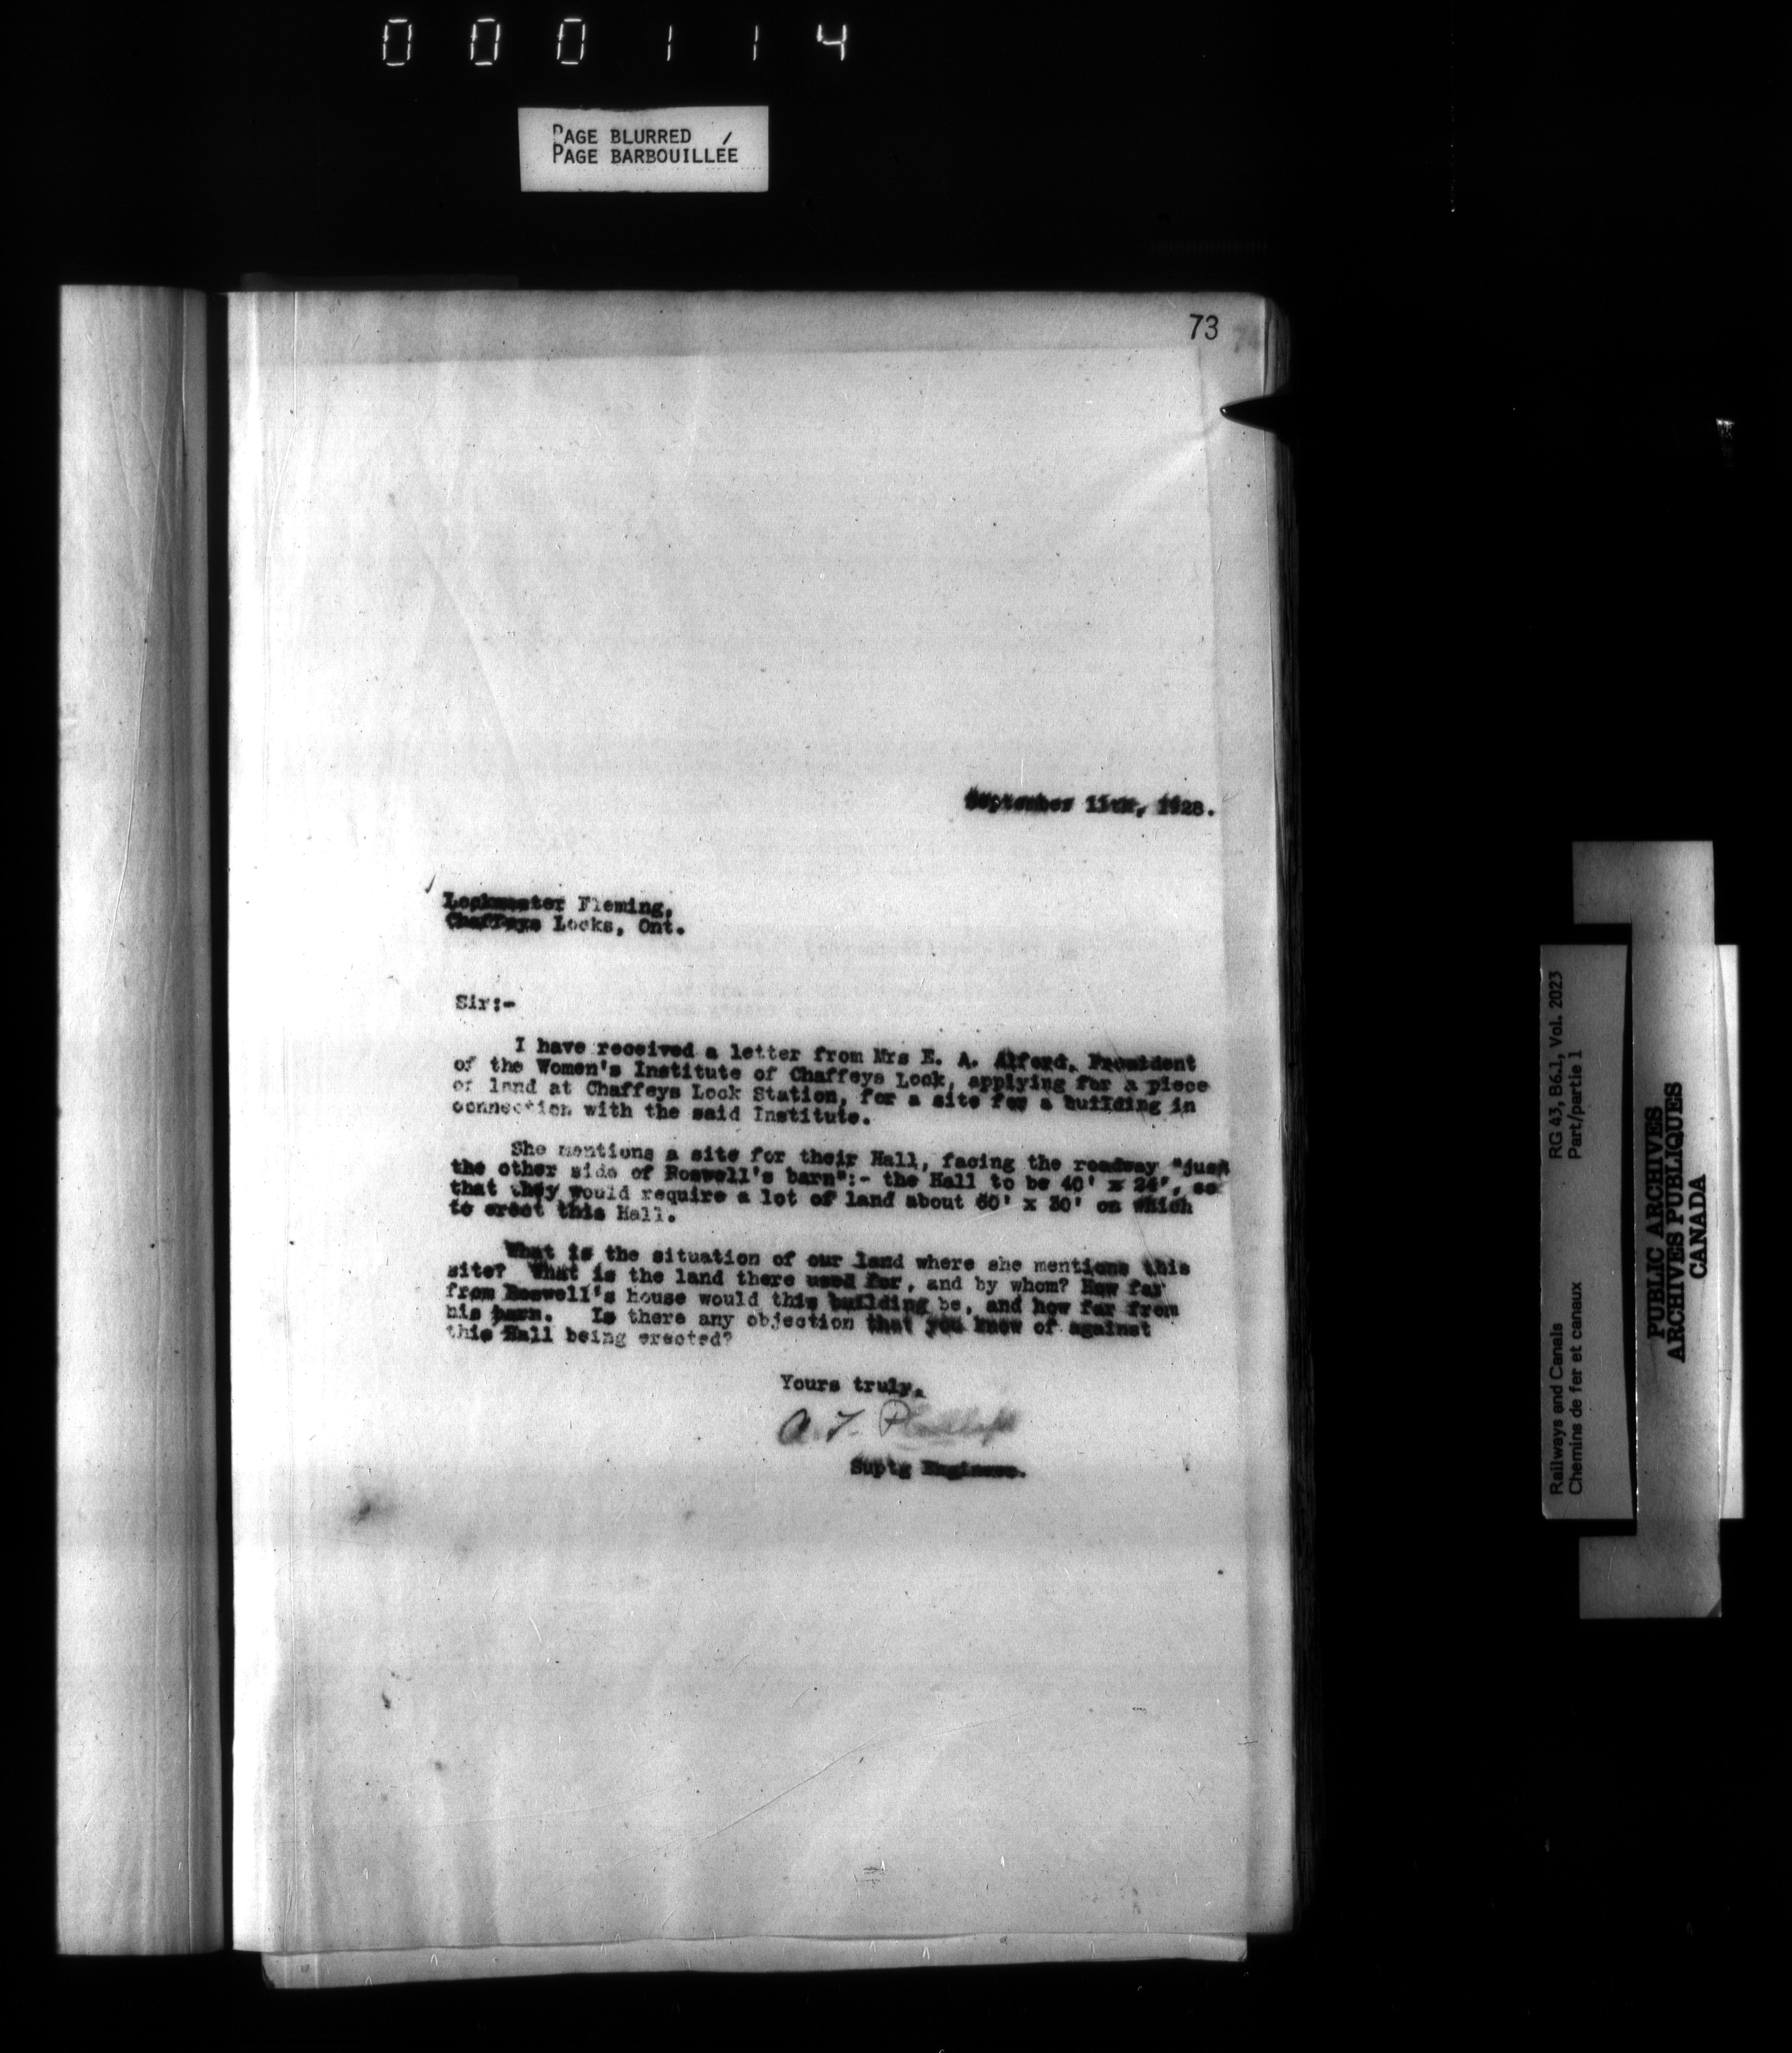 000114
PAGE BLURRED
PAGE BARBOUILLÉE
73
September 1928.
Lockmaster Fleming,
Chaffeys Locks, Ont.
Sir:-
I have received a letter from Mrs E. A. Alford, President
of the Women's Institute of Chaffeys Lock, applying for a piece
of land at Chaffeys Lock Station, for a site for a building in
connection with the said Institute.
She mentions a site for their Hall, facing the roadway "just
the other side of Roswell's barn":- the Hall to be 40' x 24', so
that they would require a lot of land about x 30' on which
to erect this Hall.
What is the situation of our land where she mentions this
site? What is the land there used for, and by whom? How far
from Roswell's house would this building be, and how far from
his barn. Is there any objection that you know of against
this Hall being erected?
Yours truly,
A. T. Phillips
Suptg Engineer.
Railways and Canals RG 43, B6.1, Vol. 2023
Chemins de fer et canaux Part/partie 1
PUBLIC ARCHIVES
ARCHIVES PUBLIQUES
CANADA